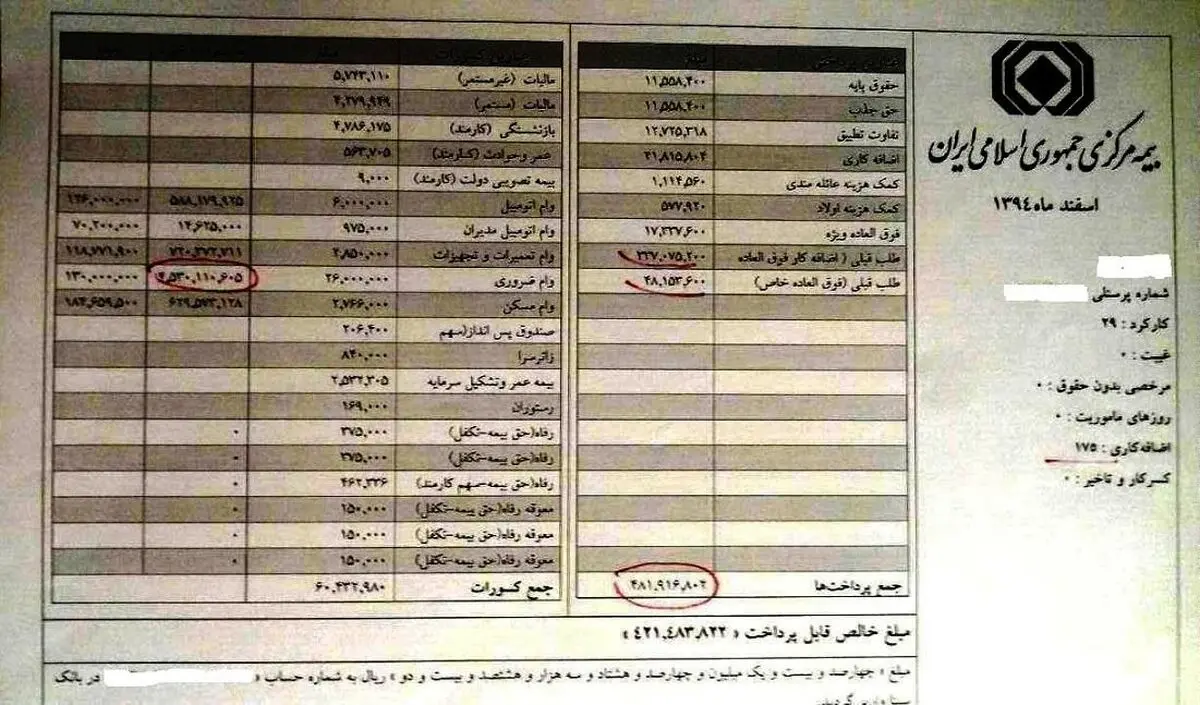 بیمه مرکزی جمهوری اسلامی ایران
اسفند ماه ۱۳۹۴
شماره پرسنلی
کارکرد : ۲۹
غیبت : ۰
مرخصی بدون حقوق : ۰
روزهای ماموریت : ۰
اضافه‌کاری : ۱۷۵
کسرکار و تاخیر : ۰
حقوق پایه ۱۱,۵۵۸,۴۰۰
حق جذب ۱۱,۵۵۸,۴۰۰
تفاوت تطبیق ۱۲,۷۲۵,۳۱۸
اضافه کاری ۲۱,۸۱۵,۸۰۴
کمک هزینه عائله مندی ۱,۱۱۴,۵۶۰
کمک هزینه اولاد ۵۷۷,۹۲۰
فوق العاده ویژه ۱۷,۳۳۷,۶۰۰
طلب قبلی ( اضافه کار فوق العاده
طلب قبلی (فوق العاده خاص) ۴۸,۱۵۳,۶۰۰
جمع پرداخت‌ها ۴۸۱,۹۱۶,۸۰۲
مالیات (غیرمستمر) ۵,۷۴۳,۱۱۰
مالیات (مستمر) ۴,۲۷۹,۹۴۹
بازنشستگی (کارمند) ۴,۷۸۶,۱۷۵
عمر وحوادث (کارمند) ۵۶۳,۷۰۵
بیمه تصویبی دولت (کارمند) ۹,۰۰۰
وام اتومبیل ۶,۰۰۰,۰۰۰ ۵۸۸,۱۷۹,۹۲۵ ۱۲۶,۰۰۰,۰۰۰
وام اتومبیل مدیران ۹۷۵,۰۰۰ ۱۴,۶۲۵,۰۰۰ ۷۰,۲۰۰,۰۰۰
وام تعمیرات و تجهیزات ۲,۸۵۰,۰۰۰ ۷۲۰,۳۷۲,۷۱۱ ۱۱۸,۷۷۱,۹۰۰
وام ضروری ۲۶,۰۰۰,۰۰۰ ۹,۵۳۰,۱۱۰,۶۰۵ ۱۳۰,۰۰۰,۰۰۰
وام مسکن ۲,۷۶۶,۰۰۰ ۶۲۹,۵۷۳,۱۲۸ ۱۸۴,۶۵۹,۵۰۰
صندوق پس انداز(سهم ۲۰۶,۴۰۰
زائرسرا ۸۴۰,۰۰۰
بیمه عمر وتشکیل سرمایه ۲,۵۳۲,۳۰۵
رستوران ۱۶۹,۰۰۰
رفاه(حق بیمه-تکفل) ۳۷۵,۰۰۰ ۰
رفاه(حق بیمه-تکفل) ۳۷۵,۰۰۰ ۰
رفاه(حق بیمه-سهم کارمند) ۴۶۲,۳۳۶ ۰
معوقه رفاه(حق بیمه-تکفل) ۱۵۰,۰۰۰ ۰
معوقه رفاه(حق بیمه-تکفل) ۱۵۰,۰۰۰ ۰
معوقه رفاه(حق بیمه-تکفل) ۱۵۰,۰۰۰ ۰
جمع کسورات ۶۰,۴۳۲,۹۸۰
مبلغ خالص قابل پرداخت « ۴۲۱,۴۸۳,۸۲۲ »
مبلغ « چهارصد و بیست و یک میلیون و چهارصد و هشتاد و سه هزار و هشتصد و بیست و دو » ریال به شماره حساب « در بانک